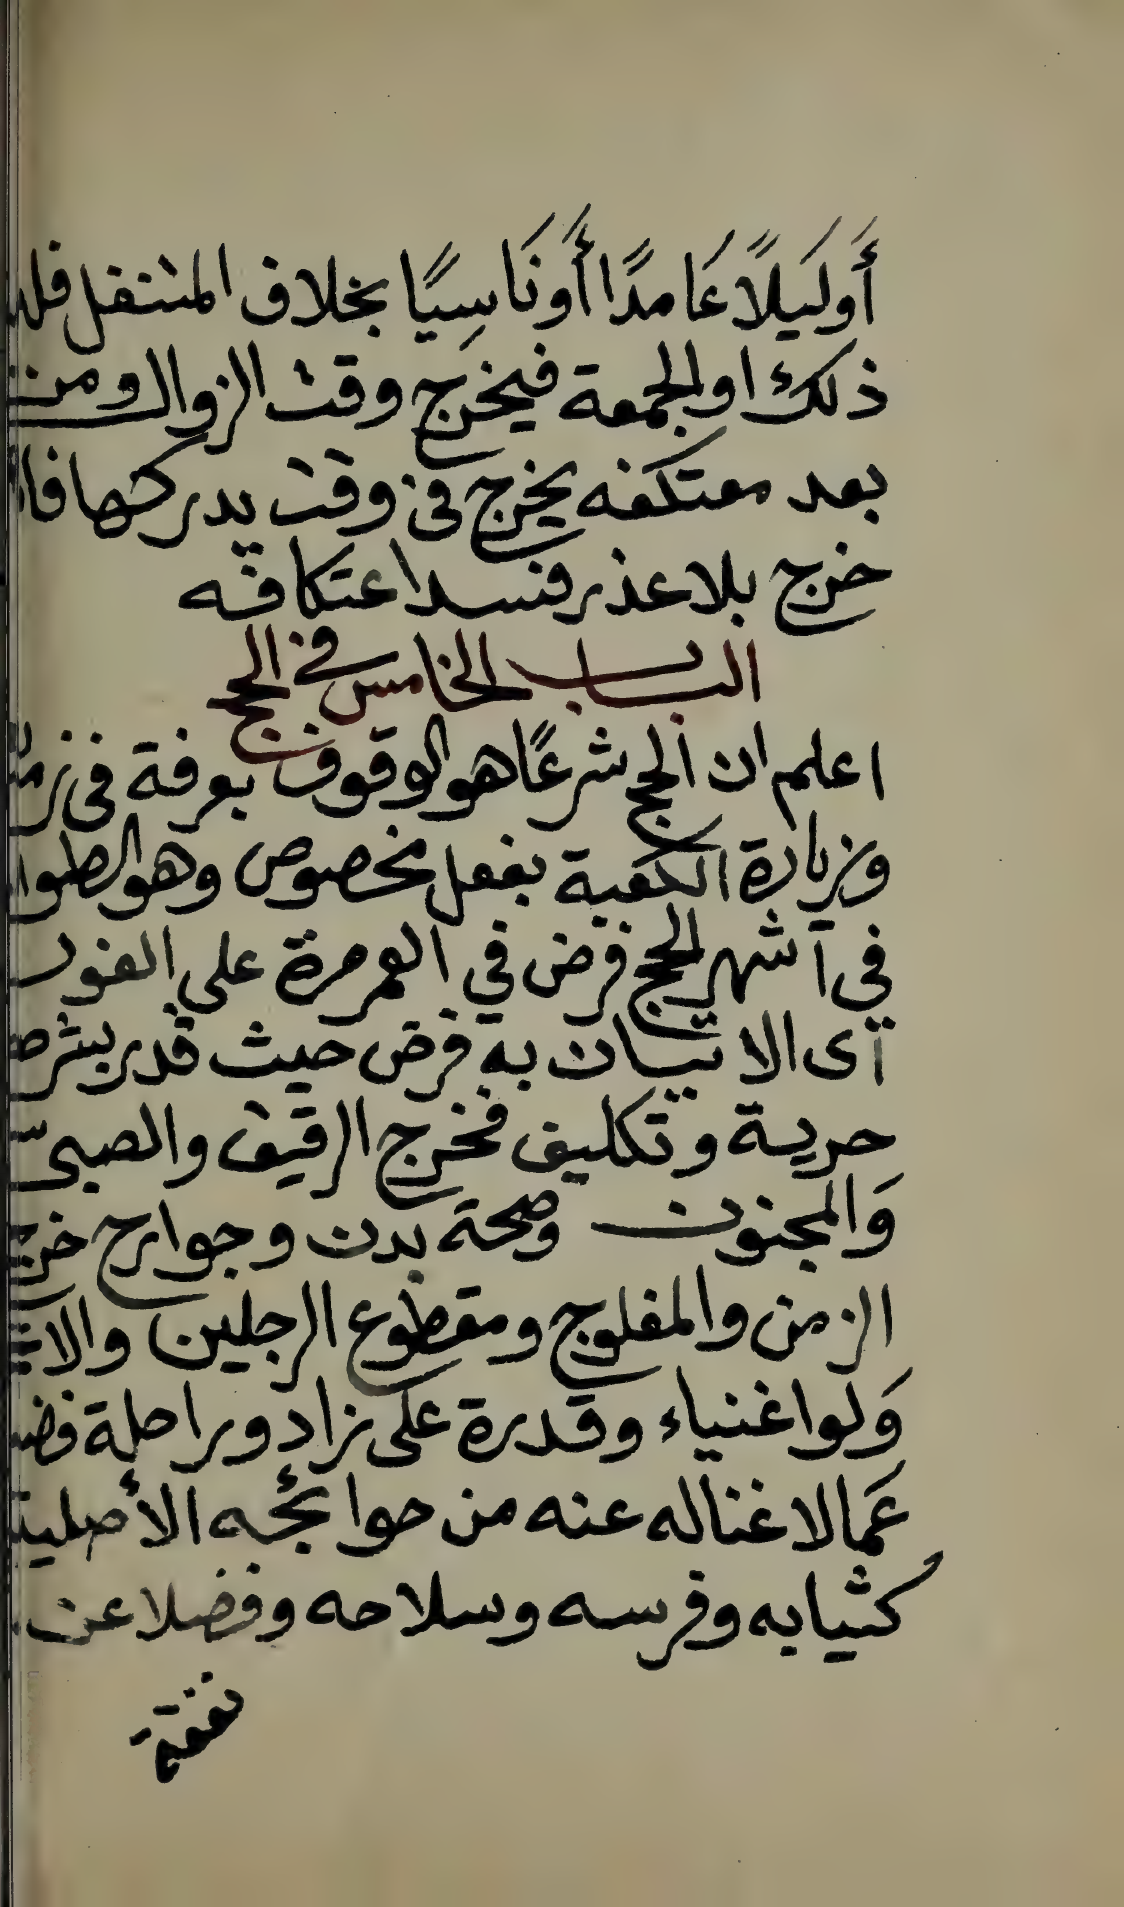 أَولَيلًا عَامدًا أَونَاسِيًا بخلاف المتنفل فله
ذلك اوالجمعة فيخرج وقت الزوال ومن
بعد معتكفه يخرج في وقت يدركها فان
خرج بلاعذر فسد اعتكافه
الباب الخامس في الحج
اعلم ان الحج شرعًا هوالوقوف بعرفة في
وزيارة الكعبة بفعل مخصوص وهوالطواف
في آشهر الحج فرض في العمر مرة على الفور
آى الاتيان به فرض حيث قدر بشرط
حرية وتكليف فخرج الرقيق والصبى
وَالمجنون وصحة بدن وجوارح خرج
الزمن والمفلوج ومقطوع الرجلين
وَلواغنياء وقدرة على زاد وراحلة
عَمالاغناله عنه من حوائجه الأصلية
كثيابه وفرسه وسلاحه وفضلا عن
نفقة